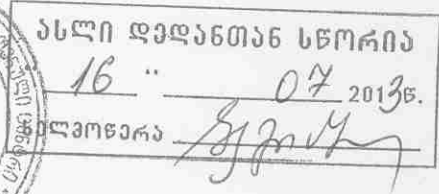 ასლი დედანთან სწორია
16 " 07 2013წ.
ხელმოწერა